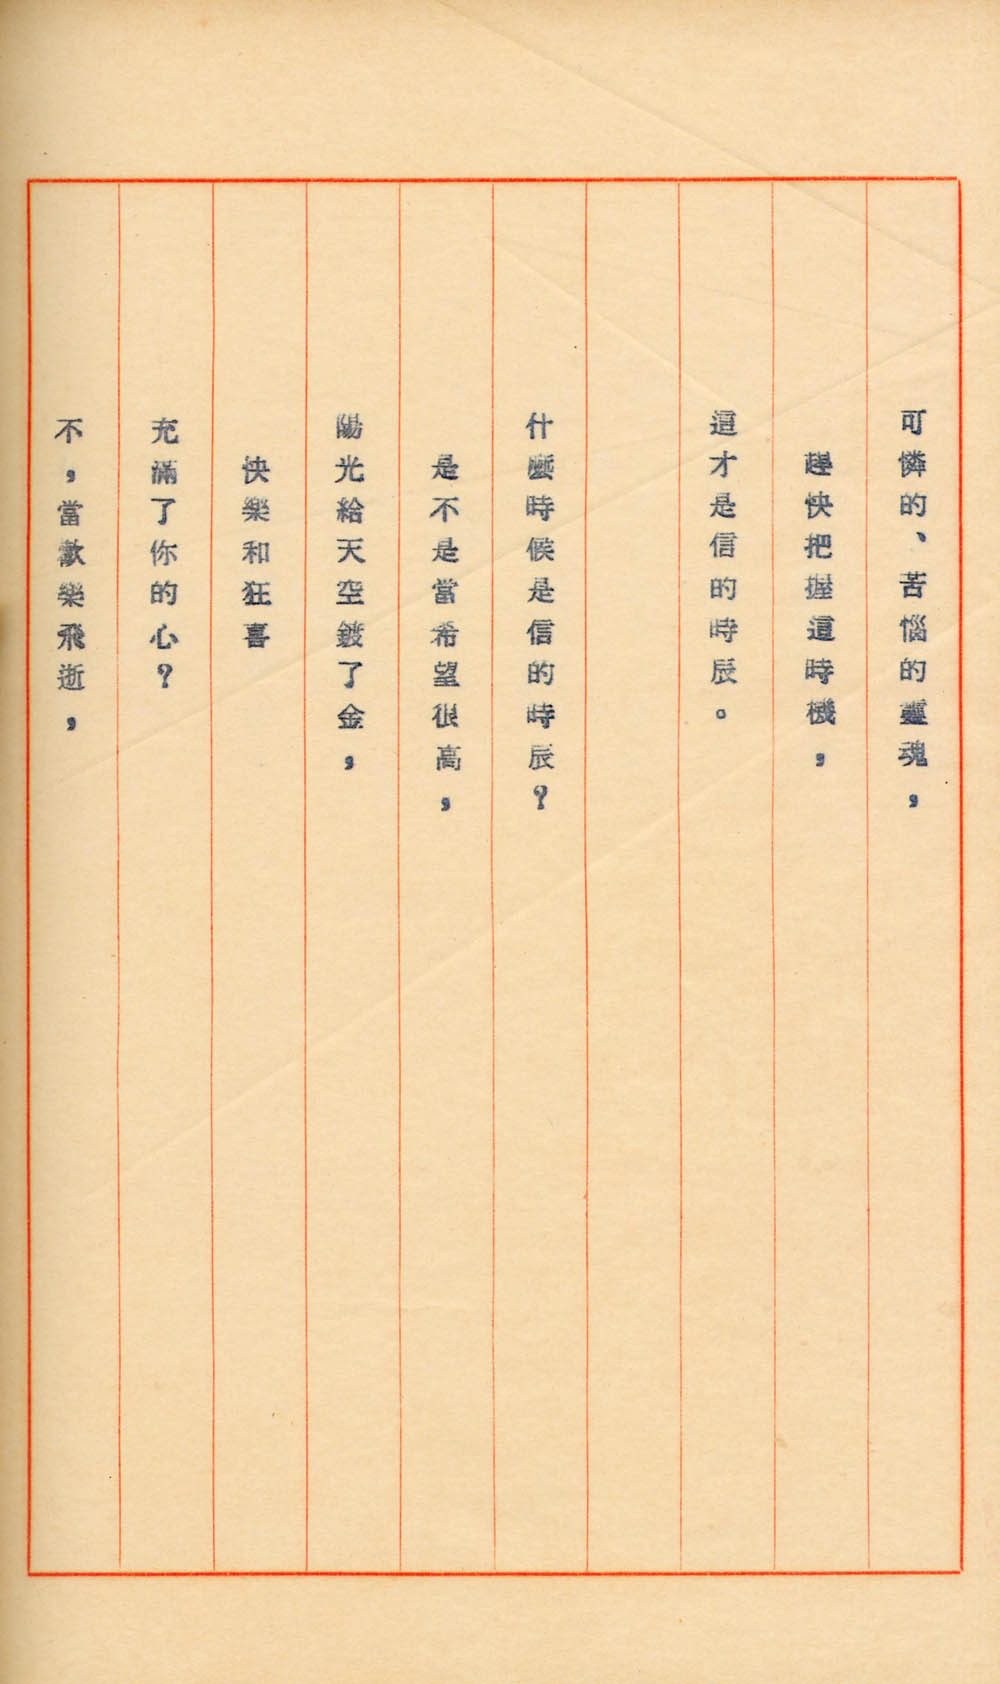 可憐的、苦惱的靈魂，
趕快把握這時機，
這才是信的時辰。
什麼時候是信的時辰？
是不是當希望很高，
陽光給天空鍍了金，
快樂和狂喜
充滿了你的心？
不，當歡樂飛逝，